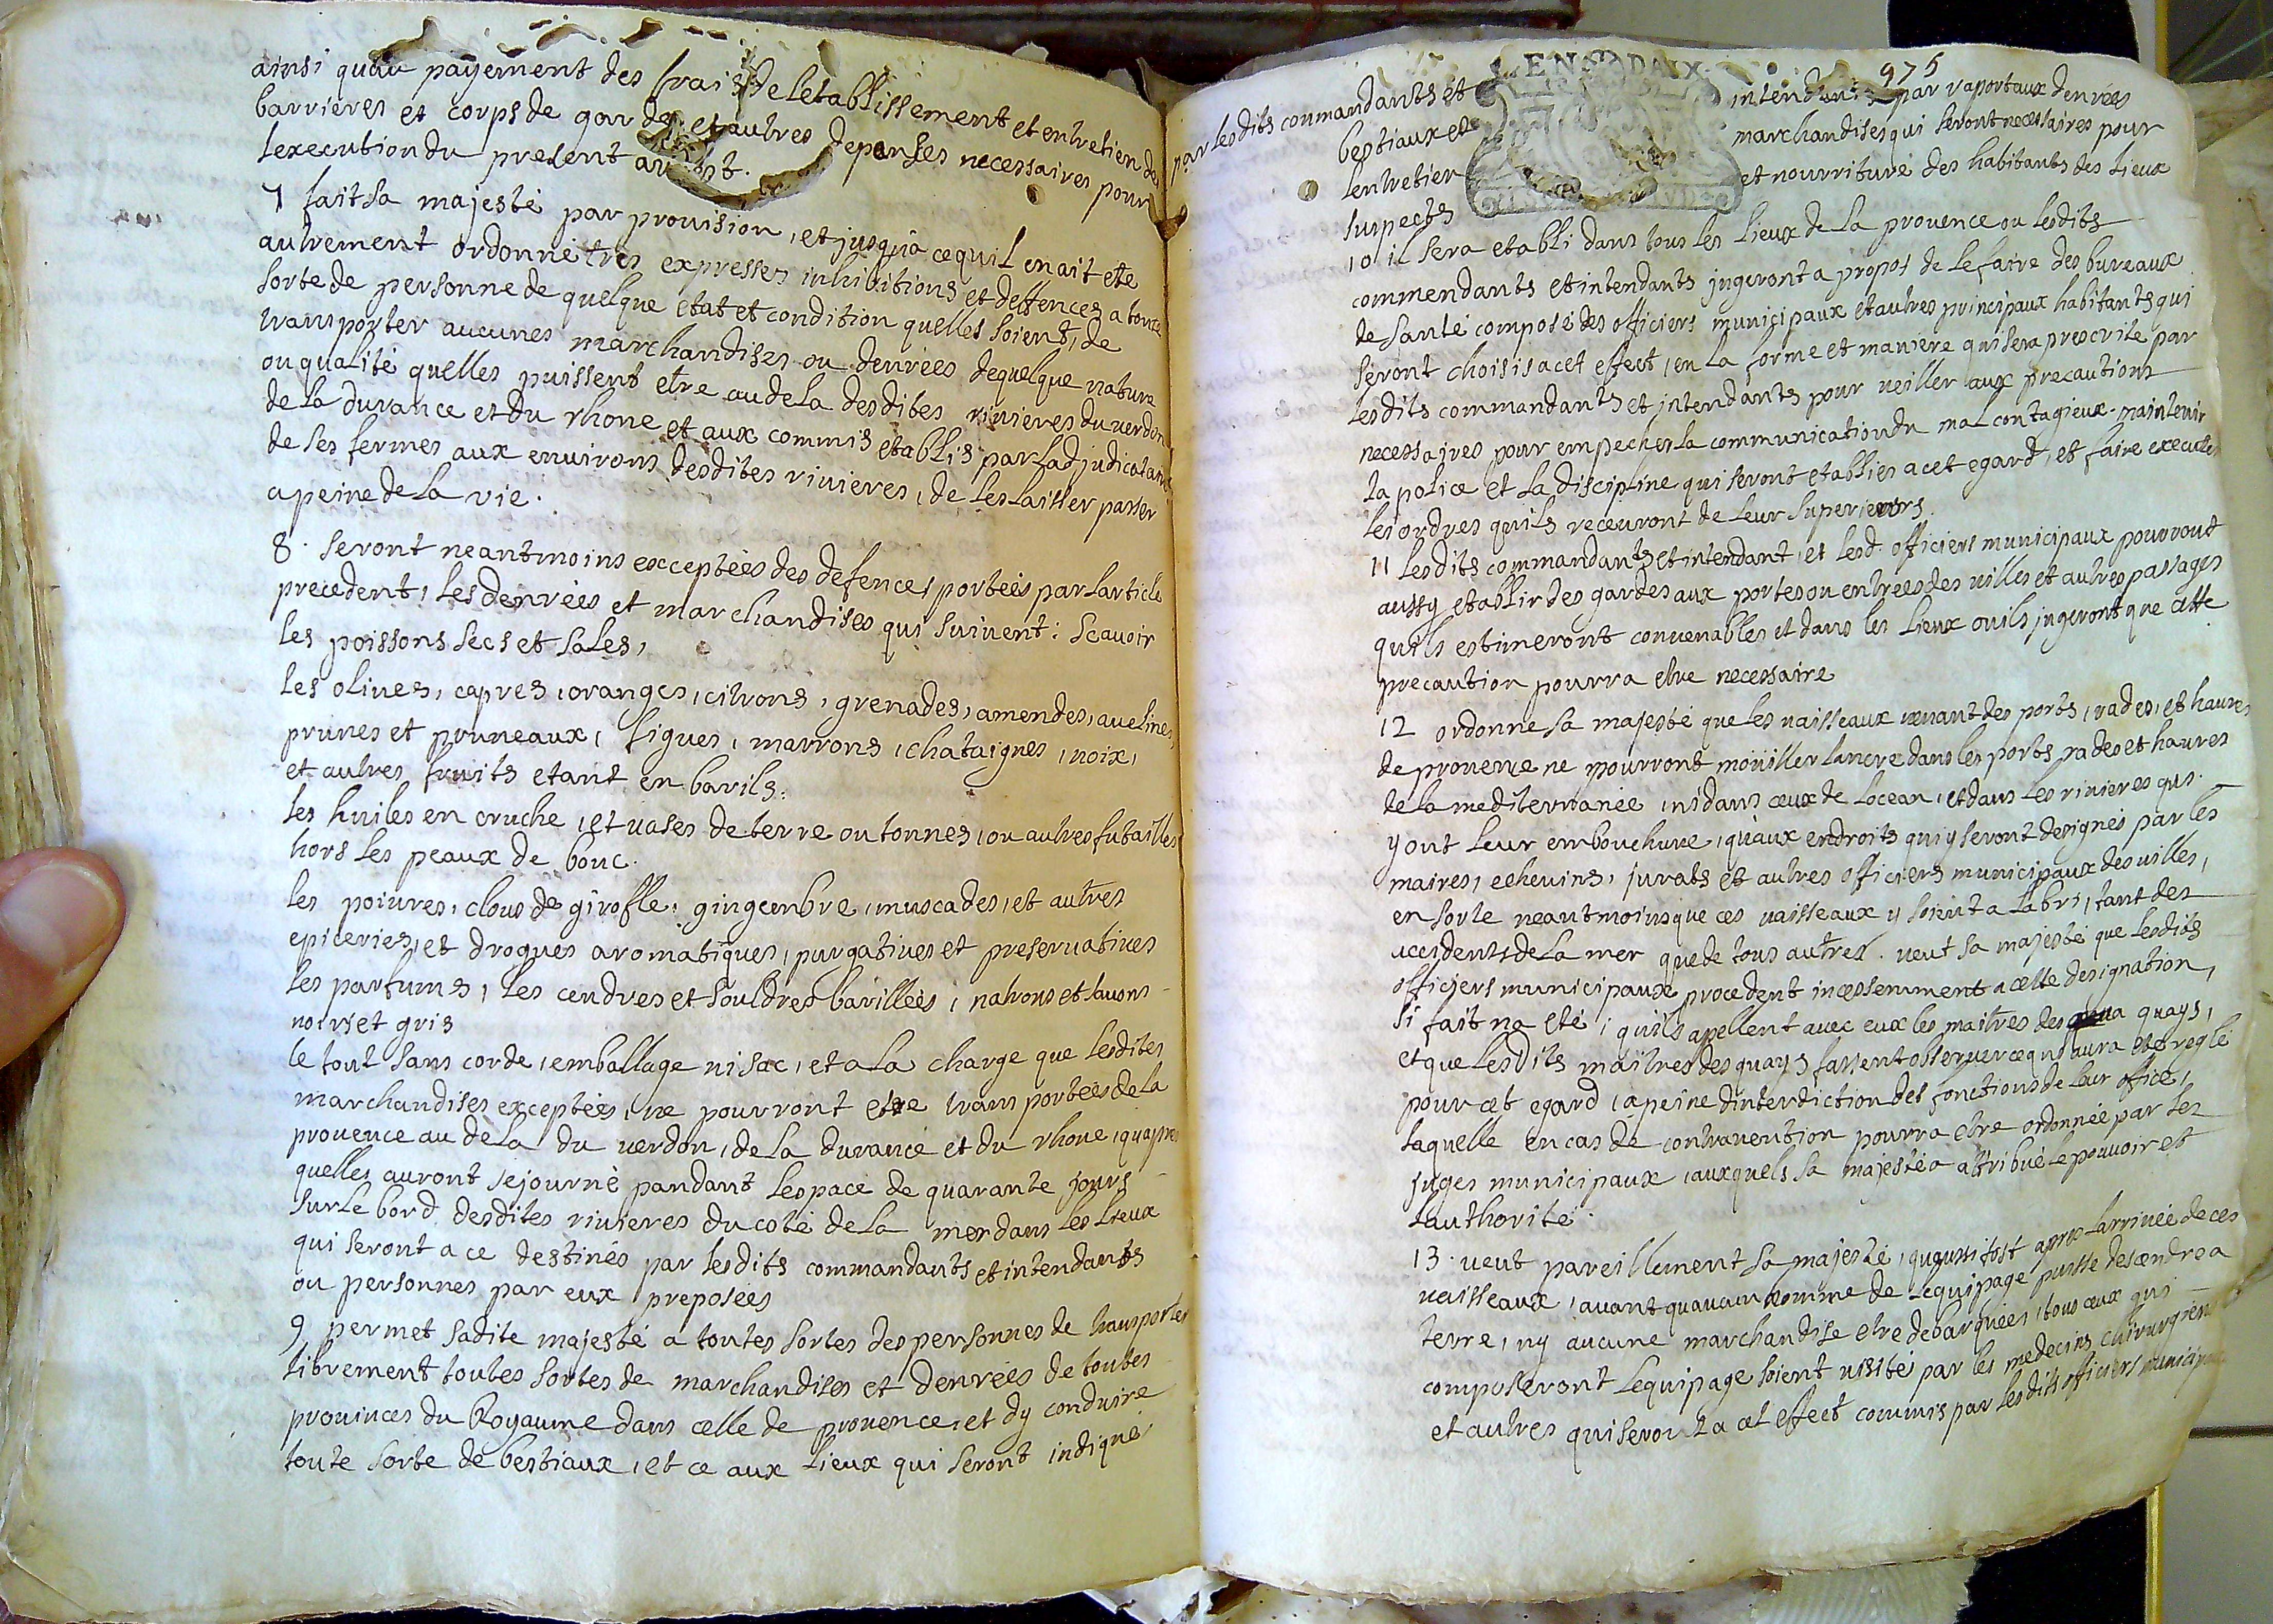 ainsi quau payement des frais de letablissement et entretien des
barrieres et corps de garde et autres depenses necessaires pour
lexecution du present arrest.
7 fait sa majesté par prouision, et jusqu'a cequil enait ette
autrement ordonné tres expresses inhibitions et deffences a toute
sorte de personne de quelque etat et condition quelles soient, de
transporter aucunes marchandises ou denrées dequelque nature
ou qualité quelles puissent etre audela desdites riuieres du uerdon
de la durance et du rhone et aux commis etablis par ladjudicataire
de ses fermes aux enuirons desdites riuieres, de les laisser passer
a peine de la vie.
8. seront neantmoins exceptées des defences portées par larticle
precedent, les denrées et marchandises qui suiuent: scauoir
les poissons secs et salés,
les oliues, capres, oranges, citrons, grenades, amendes, auelines,
prunes et pruneaux, figues, marrons, chataignes, noix,
et autres fruits etant en barils.
les huiles en cruche, et uases de terre ou tonnes, ou autres futailles
hors les peaux de bouc.
les poiures, clous de girofle, gingembre, muscades, et autres
epiceries, et drogues aromatiques, purgatiues et preseruatiues
les parfums, les cendres et souldres barillées, natrons et sauons
noirs et gris
le tout sans corde, emballage ni sac, et a la charge que lesdites
marchandises exceptées, ne pourront etre transportées de la
prouence au dela du uerdon, de la durance et du rhone, quapres
quelles auront sejourné pandant lespace de quarante jours
sur le bord desdites riuieres du coté de la mer dans les lieux
qui seront a ce destinés par lesdits commandants et intendants
ou personnes par eux preposées
9 permet sadite majesté a toutes sortes des personnes de transporter
librement toutes sortes de marchandises et denrées de toutes
prouinces du Royaume dans celle de prouence, et dy conduire
toute sorte de bestiaux, et ce aux lieux qui seront indiqué
975
EN D'AIX
par lesdits commandants et intendants par raport aux denrées
bestiaux et marchandises qui seront necessaires pour
lentretien et nourriture des habitants des lieux
suspects
10 il sera etabli dans tous les lieux de la prouence ou lesdits
commendants et intendants jugeront a propos de le faire des bureaux
de santé composé des officiers municipaux et autres principaux habitants qui
seront choisis a cet effect, en la forme et maniere qui sera prescrite par
lesdits commandants et intendants pour ueiller aux precautions
necessaires pour empecher la communication du mal contagieux. maintenir
la police et la discipline qui seront etablies a cet egard, et faire executer
les ordres quils receuront de leur superieurs.
11 lesdits commandants et intendant, et lesd. officiers municipaux pourront
aussy etablir des gardes aux portes ou entrées des uilles et autres passages
quils estimeront conuenables et dans les lieux ou ils jugeront que cette
precaution pourra etre necessaire
12 ordonne sa majesté que les uaisseaux uenant des ports, rades, et haures
de prouence ne pourront moüiller lancre dans les ports, rades et haures
de la mediterranée, ni dans ceux de locean, et dans les riuieres qui
y ont leur embouchure, qu'aux endroits qui y seront designés par les
maires, echeuins, jurats et autres officiers municipaux des uilles,
en sorte neantmoins que ces uaisseaux y soient a labri, tant des
accidents de la mer que de tous autres. ueut sa majesté que lesdits
officiers municipaux procedent incessemment a cette designation,
si fait na eté; quils apellent auec eux les maitres des quays,
et que lesdits maitres des quays fassent obseruer ce qui aura eté reglé
pour cet egard, a peine dinterdiction des fonctions de leur office,
laquelle en cas de contrauention pourra etre ordonnée par les
juges municipaux, auxquels sa majesté a attribué le pouuoir et
lauthorité.
13. ueut pareillement sa majesté, quaussitost apres larriuée de ces
uaisseaux, auant quaucun homme de lequipage puisse descendre a
terre, ny aucune marchandise etre debarquées, tous ceux qui
composeront lequipage soient uisité par les medecins, chirurgiens
et autres qui seront a cet effect commis par lesdits officiers municipaux